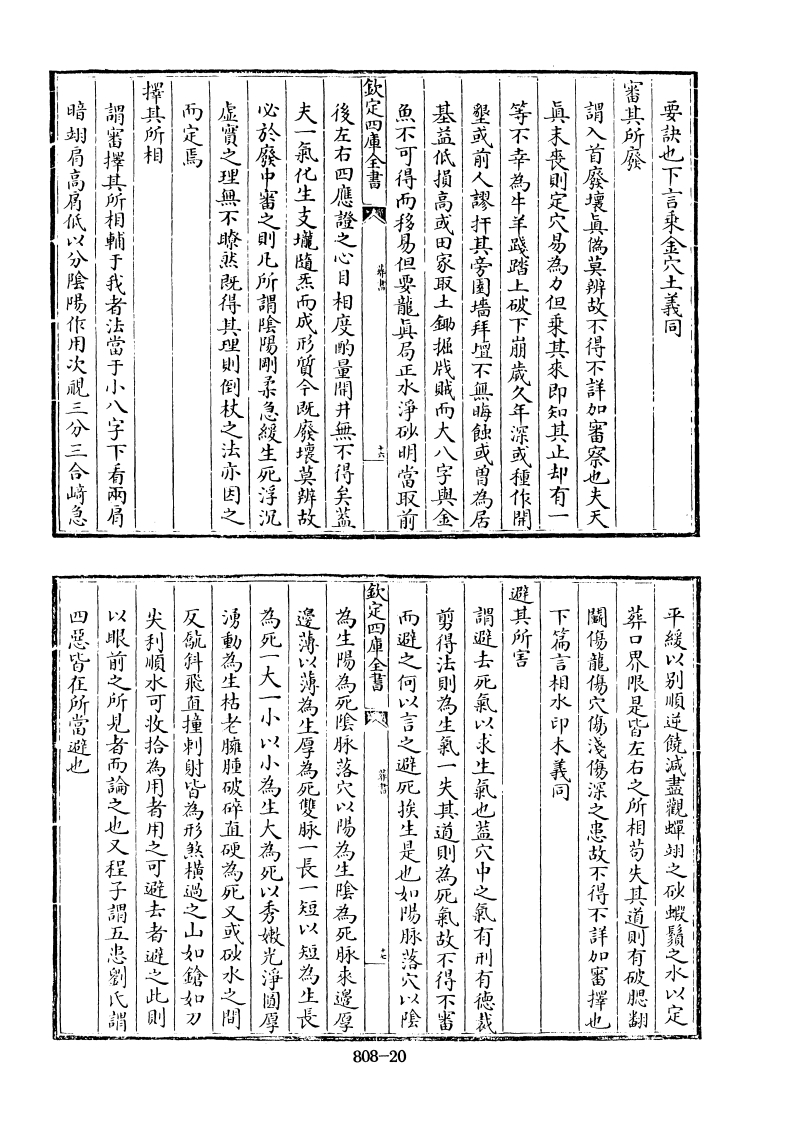 要訣也下言乘金穴土義同
審其所廢
謂入首廢壞眞偽莫辨故不得不詳加審察也夫天
眞未喪則定穴易為力但乘其來即知其止却有一
等不幸為牛羊踐踏上破下崩歲久年深或種作開
墾或前人謬扦其旁圍墻拜壇不無晦蝕或曾為居
基益低損高或田家取土鋤掘戕賊而大八字與金
魚不可得而移易但要龍眞局正水淨砂明當取前
欽定四庫全書
葬書
十六
後左右四應證之心目相度酌量開井無不得矣蓋
夫一氣化生支壠隨炁而成形質今既廢壞莫辨故
必於廢中審之則凡所謂陰陽剛柔急緩生死浮沉
虛實之理無不瞭然既得其理則倒杖之法亦因之
而定焉
擇其所相
謂審擇其所相輔于我者法當于小八字下看兩肩
暗翊肩高肩低以分陰陽作用次視三分三合崎急
平緩以別順逆饒減盡觀蟬翊之砂蝦鬚之水以定
葬口界限是皆左右之所相茍失其道則有破腮翻
鬬傷龍傷穴傷淺傷深之患故不得不詳加審擇也
下篇言相水印木義同
避其所害
謂避去死氣以求生氣也蓋穴中之氣有刑有德裁
剪得法則為生氣一失其道則為死氣故不得不審
而避之何以言之避死挨生是也如陽脉落穴以陰
欽定四庫全書
葬書
十七
為生陽為死陰脉落穴以陽為生陰為死脉來邊厚
邊薄以薄為生厚為死雙脉一長一短以短為生長
為死一大一小以小為生大為死以秀嫩光淨圓厚
湧動為生枯老臃腫破碎直硬為死又或砂水之間
反㼎斜飛直撞刺射皆為形煞橫過之山如鎗如刀
尖利順水可收拾為用者用之可避去者避之此則
以眼前之所見者而論之也又程子謂五患劉氏謂
四惡皆在所當避也
808-20